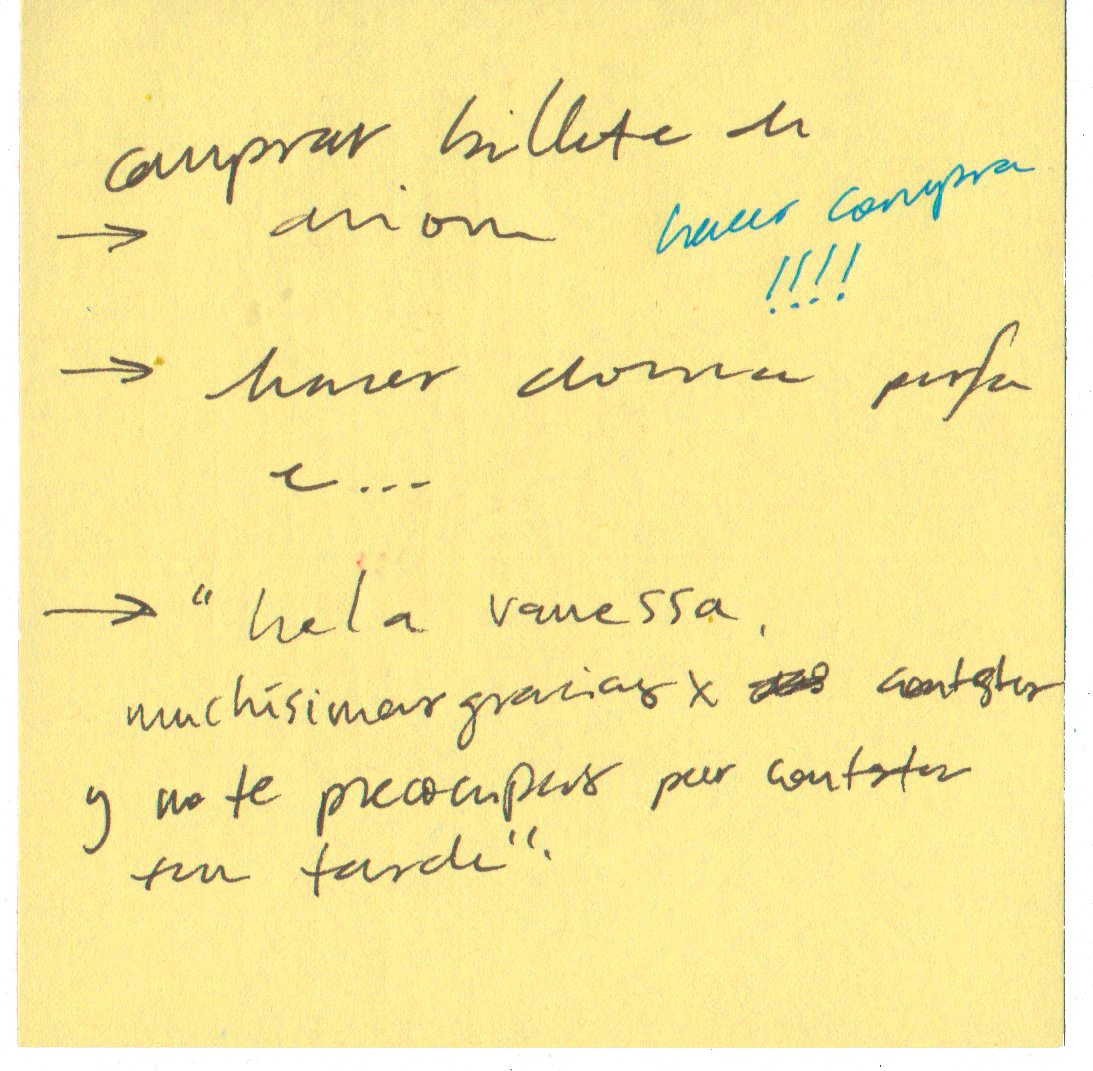 comprar billete de
→ avion
hacer compra
!!!!
→ hacer
e...
→ "hola vanessa,
muchísimas gracias x contestar
y no te preocupes por contestar
tan tarde".